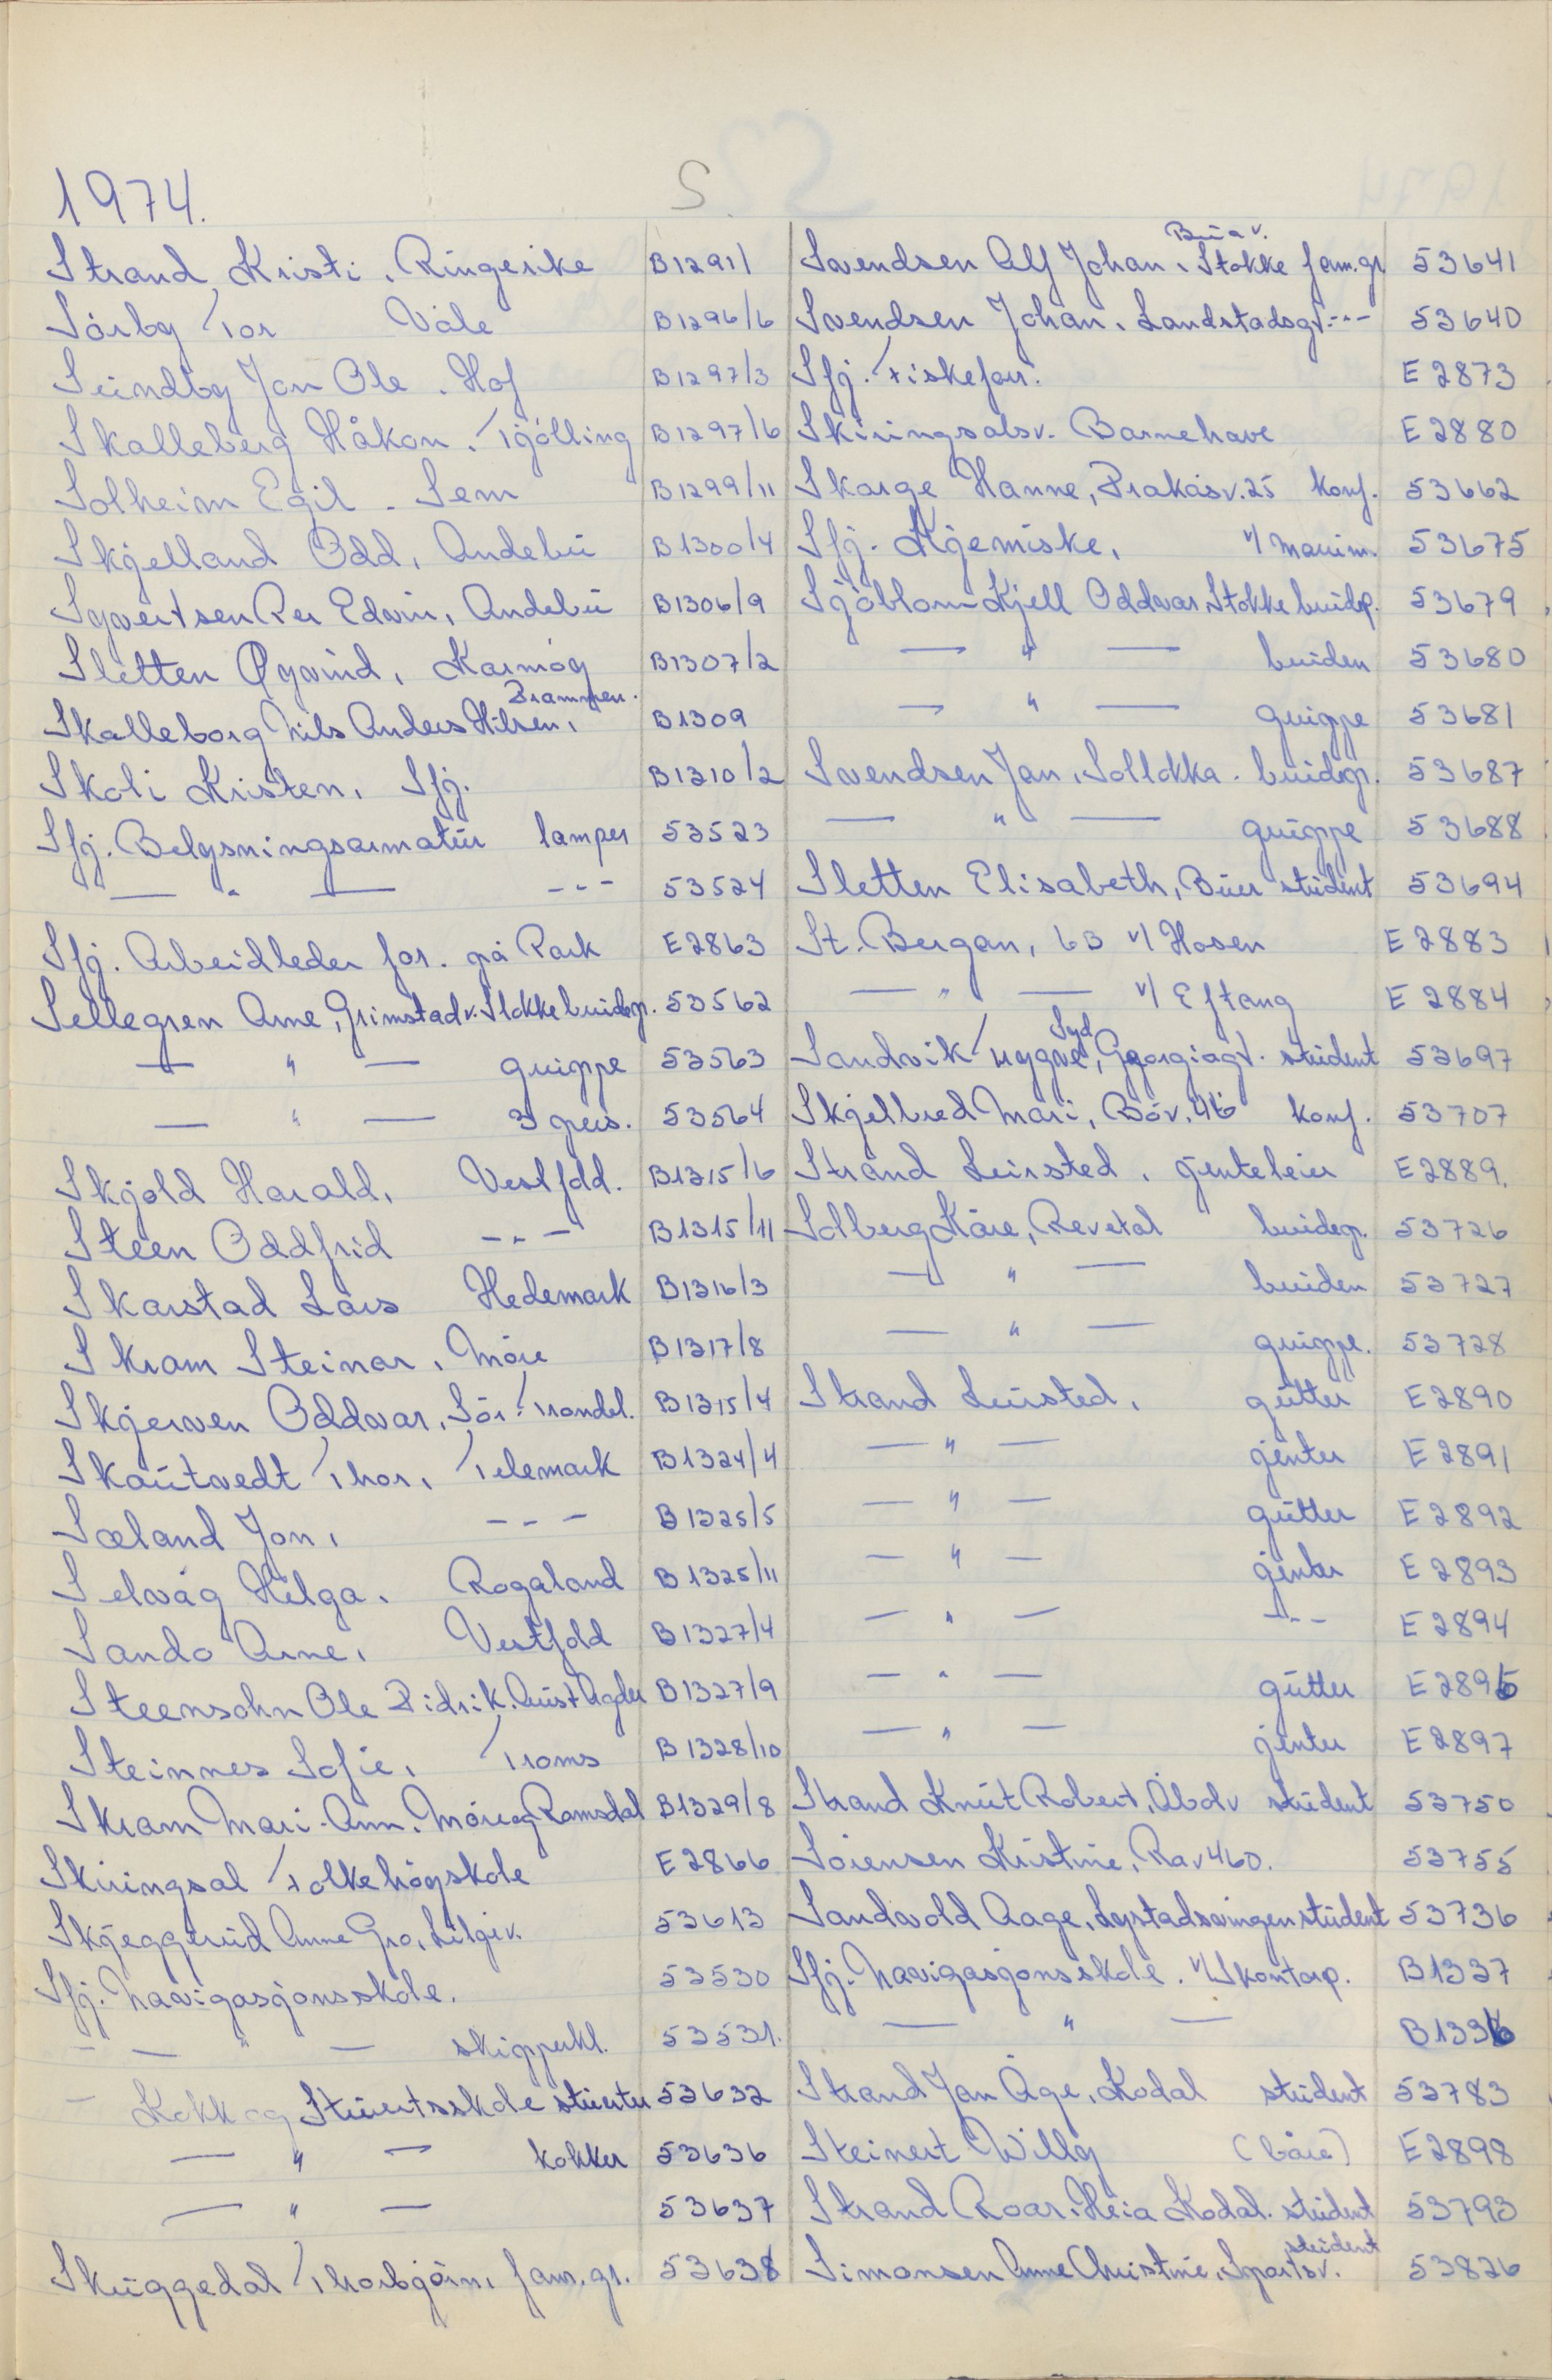 1974.
S.
Strand, Kristi. Ringerike B1291/1
Sørby Tor Våle B1296/6
Sundby Jan Ole. Hof B1297/3
Skalleberg Håkon. Tjølling B1297/6
Solheim Egil - Sem B1299/11
Skjelland Odd, Andebu B1300/4
Syvertsen Per Edvin, Andebu B1306/9
Sletten Øyvind, Karmøy B1307/2
Drammen.
Skalleborg Nils Anders Nilsen, B1309
Skoli Kristen, Sfj. B1310/2
Sfj. Belysningsarmatur lamper 53523
— " — --- 53524
Sfj. Arbeidleder for. på Park E2863
Sellegren Arne, Grimstadv. Stokke brudep. 53562
— " — gruppe 53563
— " — 3 pers. 53564
Skjold Harald, Vestfold. B1315/6
Steen Oddfrid --- B1315/11
Skarstad Lars Hedemark B1316/3
Skram Steinar, Møre B1317/8
Skjerven Oddvar, Sør-Trøndel. B1315/4
Skautvedt Thor, Telemark B1324/4
Sæland Jon, --- B1325/5
Selvåg Helga. Rogaland B1325/11
Sando Arne, Vestfold B1327/4
Steensohn Ole Didrik. Aust Agder B1327/9
Steinnes Sofie, Troms B1328/10
Skram Mari-Ann. Møre og Romsdal B1329/8
Skiringsal Folkehøgskole E2866
Skjeggerud Anne Gro, Liljev. 53613
Sfj. Navigasjonsskole. 53530
- — " — skipperkl. 53531.
- Kokk og Stuertsskole stuerter 53632
— " — kokker 53636
— " — 53637
Skuggedal Thorbjørn, fam.gr. 53638
Bua v.
Svendsen Alf Johan, Stokke fam.gr 53641
Svendsen Johan, Landstadsgt. --- 53640
Sfj. Fiskefor. E2873
Skiringsalsv. Barnehave E2880
Skarge Hanne, Prakåsv. 25 konf. 53662
Sfj. Kjemiske, v/ Maurin. 53675
Sjöblom Kjell Oddvar Stokke brudep. 53679
— " — bruden 53680
— " — gruppe 53681
Svendsen Jan, Solløkka. brudep. 53687
— " — gruppe 53688
Sletten Elisabeth, Buer student 53694
St. Bergan, 6B v/ Hosen E2883
— " — v/ Eftang E2884
Syd
Sandvik Trygve, Georgiagt. student 53697
Skjelbred Mari, Bøv. 46 konf. 53707
Strand Leirsted, jenteleir E2889.
Solberg Kåre, Revetal brudep. 53726
— " — bruden 53727
— " — gruppe. 53728
Strand Leirsted, gutter E2890
— " — jenter E2891
— " — gutter E2892
— " — jenter E2893
— " — --- E2894
— " — gutter E2896
— " — jenter E2897
Strand Knut Robert, Åbolv student 53750
Sørensen Kristine, Rav 460. 53755
Sandvold Aage, Lystadsvingen student 53736
Sfj. Navigasjonsskole. v/ Skontorp. B1337
— " — B1336
Strand Jan Åge, Kodal student 53783
Steinert Willy (båre) E2898
Strand Roar, Heia Kodal. student 53793
student
Simonsen Anne Christine, Sportsv. 53826